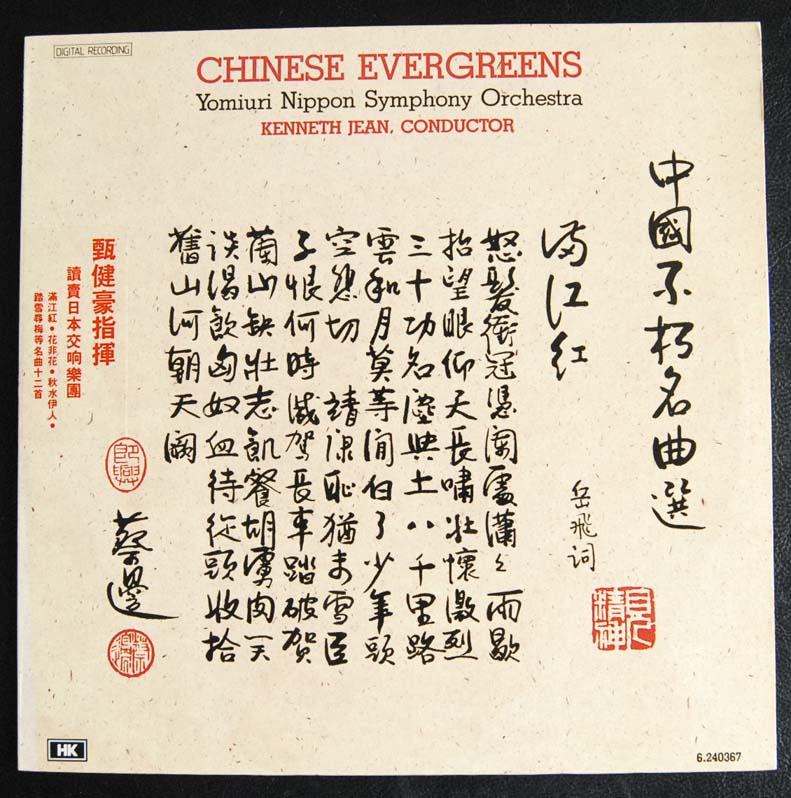 DIGITAL RECORDING
CHINESE EVERGREENS
Yomiuri Nippon Symphony Orchestra
KENNETH JEAN, CONDUCTOR
中國不朽名曲選
满江红
岳飛詞
怒髮衝冠憑闌處瀟々雨歇
抬望眼仰天長嘯壯懷激烈
三十功名塵與土八千里路
雲和月莫等閒白了少年頭
空悲切 靖康恥猶未雪臣
子恨何時滅駕長車踏破賀
蘭山缺壯志飢餐胡虜肉笑
談渴飲匈奴血待從頭收拾
舊山河朝天闕
甄健豪指揮
讀賣日本交响樂團
滿江紅•花非花•秋水伊人•
踏雪尋梅等名曲十二首
蔡
HK
6.240367